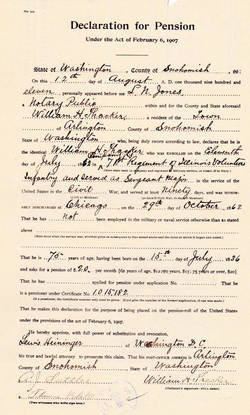 Declaration for Pension
Under the Act of February 6, 1907
State of Washington, County of Snohomish, ss:
On this 12th day of August A. D. one thousand nine hundred and
eleven, personally appeared before me L. N. Jones,
a Notary Public within and for the County and State aforesaid
William H. Thacker, a resident of the Town
Arlington County of Snohomish
State of Washington, who, being duly sworn according to law, declares that he is
the identical William H. Thacker who was ENROLLED on the Eleventh
day of July 1862 71st Regiment of Illinois Volunteer
Infantry and served as Sergeant Major in the service of the
United States in the Civil War, and served Ninety days, and was
DISCHARGED at Chicago on the 29th day of October 1862
That he has not been employed in the military or naval service otherwise than as stated
above
That he is 75 years of age, having been born on the 15th day of July 1836
and asks for a pension of $20 per month
That he has applied for pension under application No. That he is
a pensioner under Certificate No. 1.015182
That he makes this declaration for the purpose of being placed on the pension-roll of the United States under the
provisions of the act of February 6, 1907.
He hereby appoints, with full power of substitution and revocation,
Lewis Heininger of Washington D. C.
his true and lawful attorney to prosecute this claim. That his POST-OFFICE ADDRESS is Arlington
County of Snohomish State of Washington
William H. Thacker